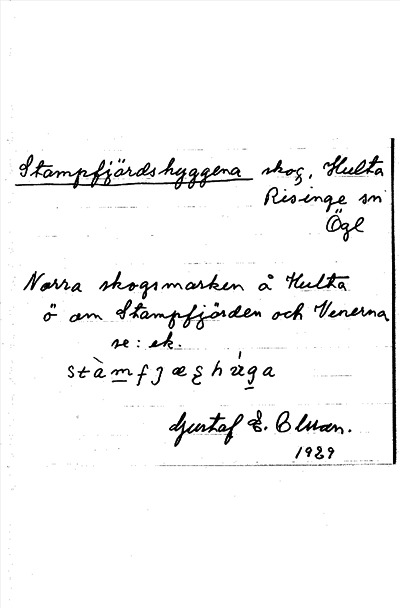 Stampfjärdshyggena skog, Hulta
Risinge sn
Ögl
Norra skogsmarken å Hulta
ö om Stampfjärden och Venerna
se: ek.
Gustaf E.
1929